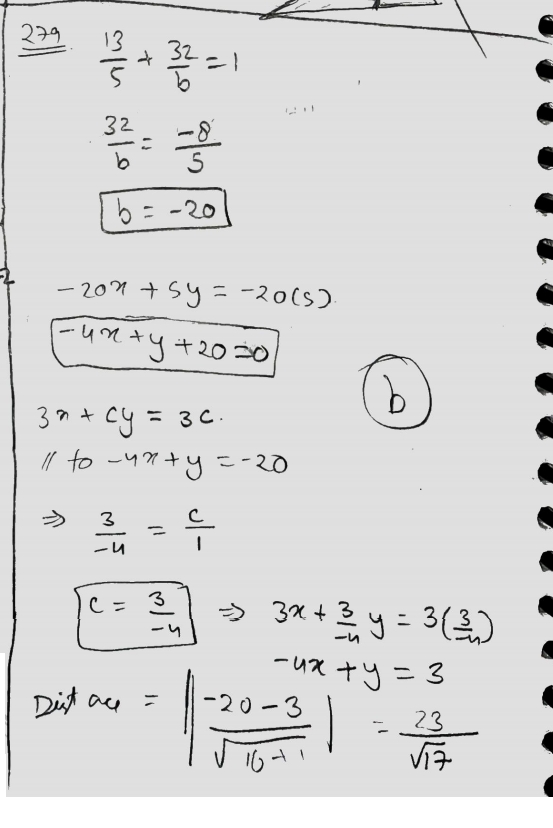 279 13/5 + 32/b = 1
32/b = -8/5
b = -20
-20x + 5y = -20(5).
-4x+y+20=0
b
3x + cy = 3c.
// to -4x+y = -20
⇒ 3/-4 = c/1
c = 3/-4 ⇒ 3x + 3/-4 y = 3(3/-4)
-4x + y = 3
Distance = | -20-3 / √16+1 | = 23/√17